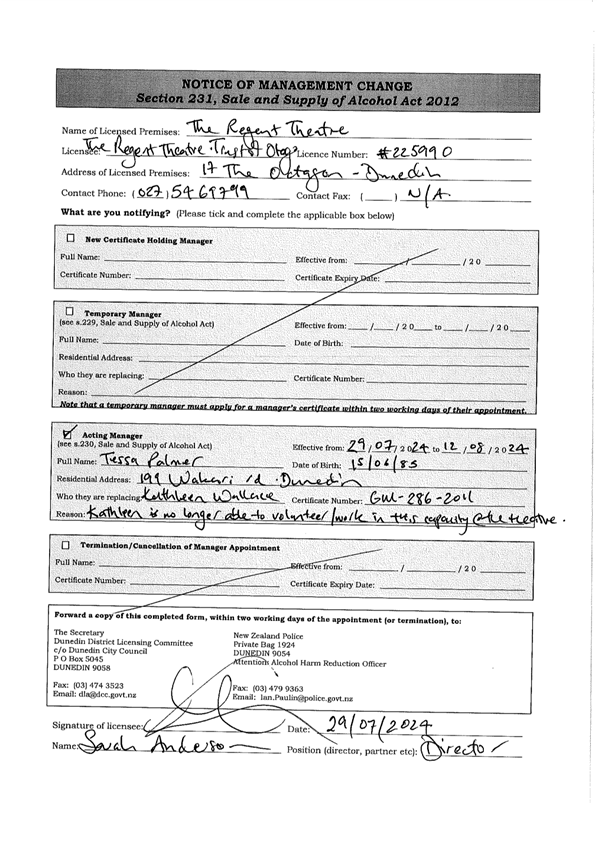 NOTICE OF MANAGEMENT CHANGE
Section 231, Sale and Supply of Alcohol Act 2012
Name of Licensed Premises: The Regent Theatre
Licensee: The Regent Theatre Trust of Otago Licence Number: #225990
Address of Licensed Premises: 17 The Octagon - Dunedin
Contact Phone: (027) 5469799 Contact Fax: ( ) N/A
What are you notifying? (Please tick and complete the applicable box below)
☐ New Certificate Holding Manager
Full Name: Effective from: / /20
Certificate Number: Certificate Expiry Date:
☐ Temporary Manager
(see s.229, Sale and Supply of Alcohol Act) Effective from: / /20 to / /20
Full Name: Date of Birth:
Residential Address:
Who they are replacing: Certificate Number:
Reason:
Note that a temporary manager must apply for a manager's certificate within two working days of their appointment.
☑ Acting Manager
(see s.230, Sale and Supply of Alcohol Act) Effective from: 29/07/2024 to 12/08/2024
Full Name: Tessa Palmer Date of Birth: 15/06/85
Residential Address: 199 Wakari rd. Dunedin
Who they are replacing: Kathleen Wallace Certificate Number: GM-286-2011
Reason: Kathleen is no longer able to volunteer/work in this capacity @ the theatre.
☐ Termination/Cancellation of Manager Appointment
Full Name: Effective from: / /20
Certificate Number: Certificate Expiry Date:
Forward a copy of this completed form, within two working days of the appointment (or termination), to:
The Secretary
Dunedin District Licensing Committee
c/o Dunedin City Council
P O Box 5045
DUNEDIN 9058
Fax: (03) 474 3523
Email: dla@dcc.govt.nz
New Zealand Police
Private Bag 1924
DUNEDIN 9054
Attention: Alcohol Harm Reduction Officer
Fax: (03) 479 9363
Email: Ian.Paulin@police.govt.nz
Signature of licensee: Date: 29/07/2024
Name: Sarah Anderson Position (director, partner etc): Director